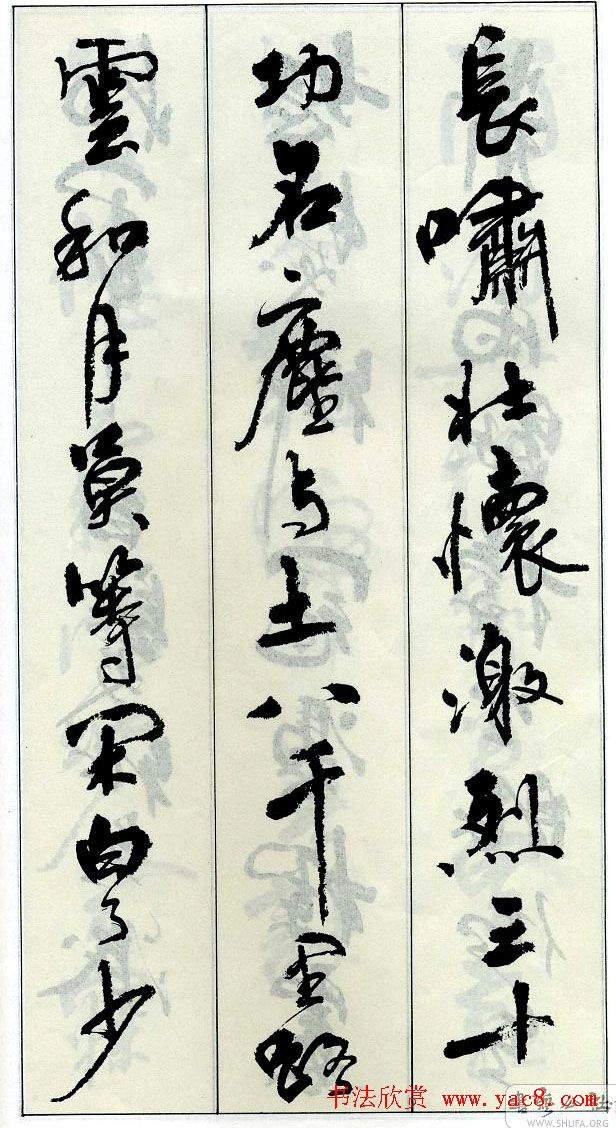 長嘯壮懷激烈三十
功名塵与土八千里路
雲和月莫等闲白了少
书法欣赏 www.yac8.com
WWW.SHUFA.ORG